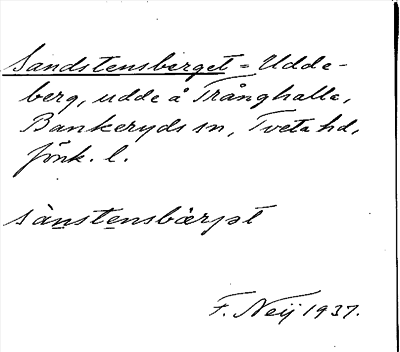 Sandstensberget = Udde-
berg, udde å Trånghalla,
Bankeryds sn, Tveta hd,
Jönk. l.
sànstensbærjət
F. Neij 1937.